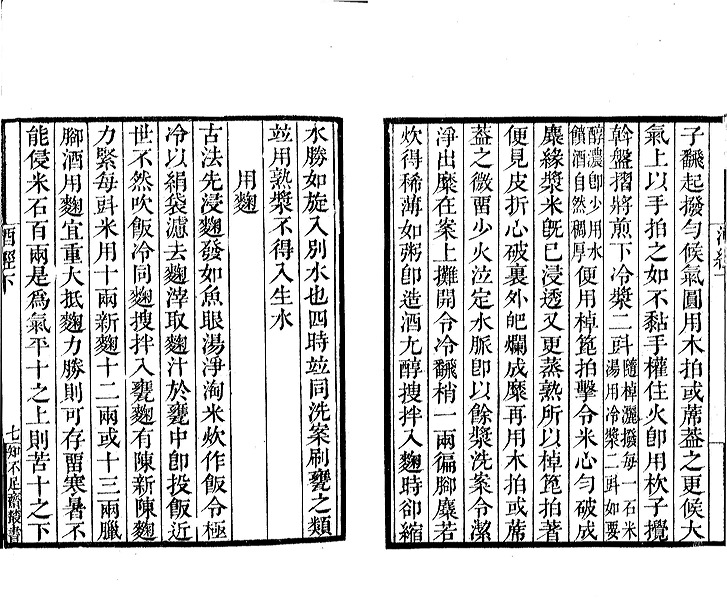 子飜起撥勻候氣圓用木拍或蓆葢之更候大
氣上以手拍之如不黏手權住火卽用杴子攪
斡盤摺將煎下冷漿二㪷隨棹灑撥每一石米湯用冷漿二㪷如要
醇濃卽少用水饋酒自然稠厚便用棹箆拍擊令米心勻破成
麋緣漿米旣已浸透又更蒸熟所以棹箆拍著
便見皮折心破裏外𤆵爛成麋再用木拍或蓆
葢之微畱少火泣定水脈卽以餘漿洗案令潔
淨出麋在案上攤開令冷飜稍一兩徧腳麋若
炊得稀薄如粥卽造酒尤醇搜拌入麴時卻縮
水勝如旋入別水也四時竝同洗案刷甕之類
竝用熟漿不得入生水
用麴
古法先浸麴發如魚眼湯淨淘米炊作飯令極
冷以絹袋濾去麴滓取麴汁於甕中卽投飯近
世不然吹飯冷同麴搜拌入甕麴有陳新陳麴
力緊每㪷米用十兩新麴十二兩或十三兩臘
腳酒用麴宜重大抵麴力勝則可存畱寒暑不
能侵米石百兩是爲氣平十之上則苦十之下
酒經下
七知不足齋叢書